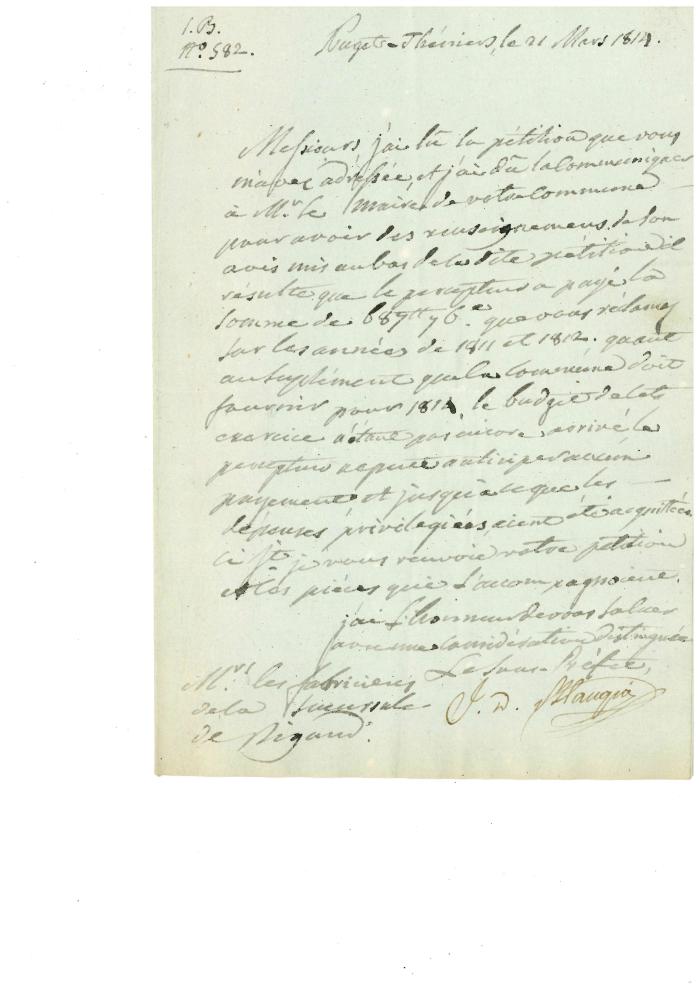 1. B.
N.o 582.
Puget-Théniers, le 21 Mars 1814.
Messieurs j'ai lu la pétition que vous
m'avez adressée, et j'ai dû la communiquer
à M.r le Maire de votre commune
pour avoir des renseignemens. de son
avis mis au bas de la dite pétition il
résulte que le percepteur a payé la
somme de 689 76.c que vous réclamez
sur les années de 1811 et 1812. quant
au suplément que la commune doit
fournir pour 1814, le budget de cet
exercice n'étant pas encore arrivé le
percepteur ne peut anticiper aucun
payement et jusqu'à ce que les
dépenses privilegiées aient été acquittées
je vous renvoie votre petition
et les pièces qui l'accompagnoient.
j'ai l'honneur de vous saluer
avec une considération distinguée
Le Sous-Préfet,
M.rs les fabriciens
de la succursale
de Rigaud.
J. D.